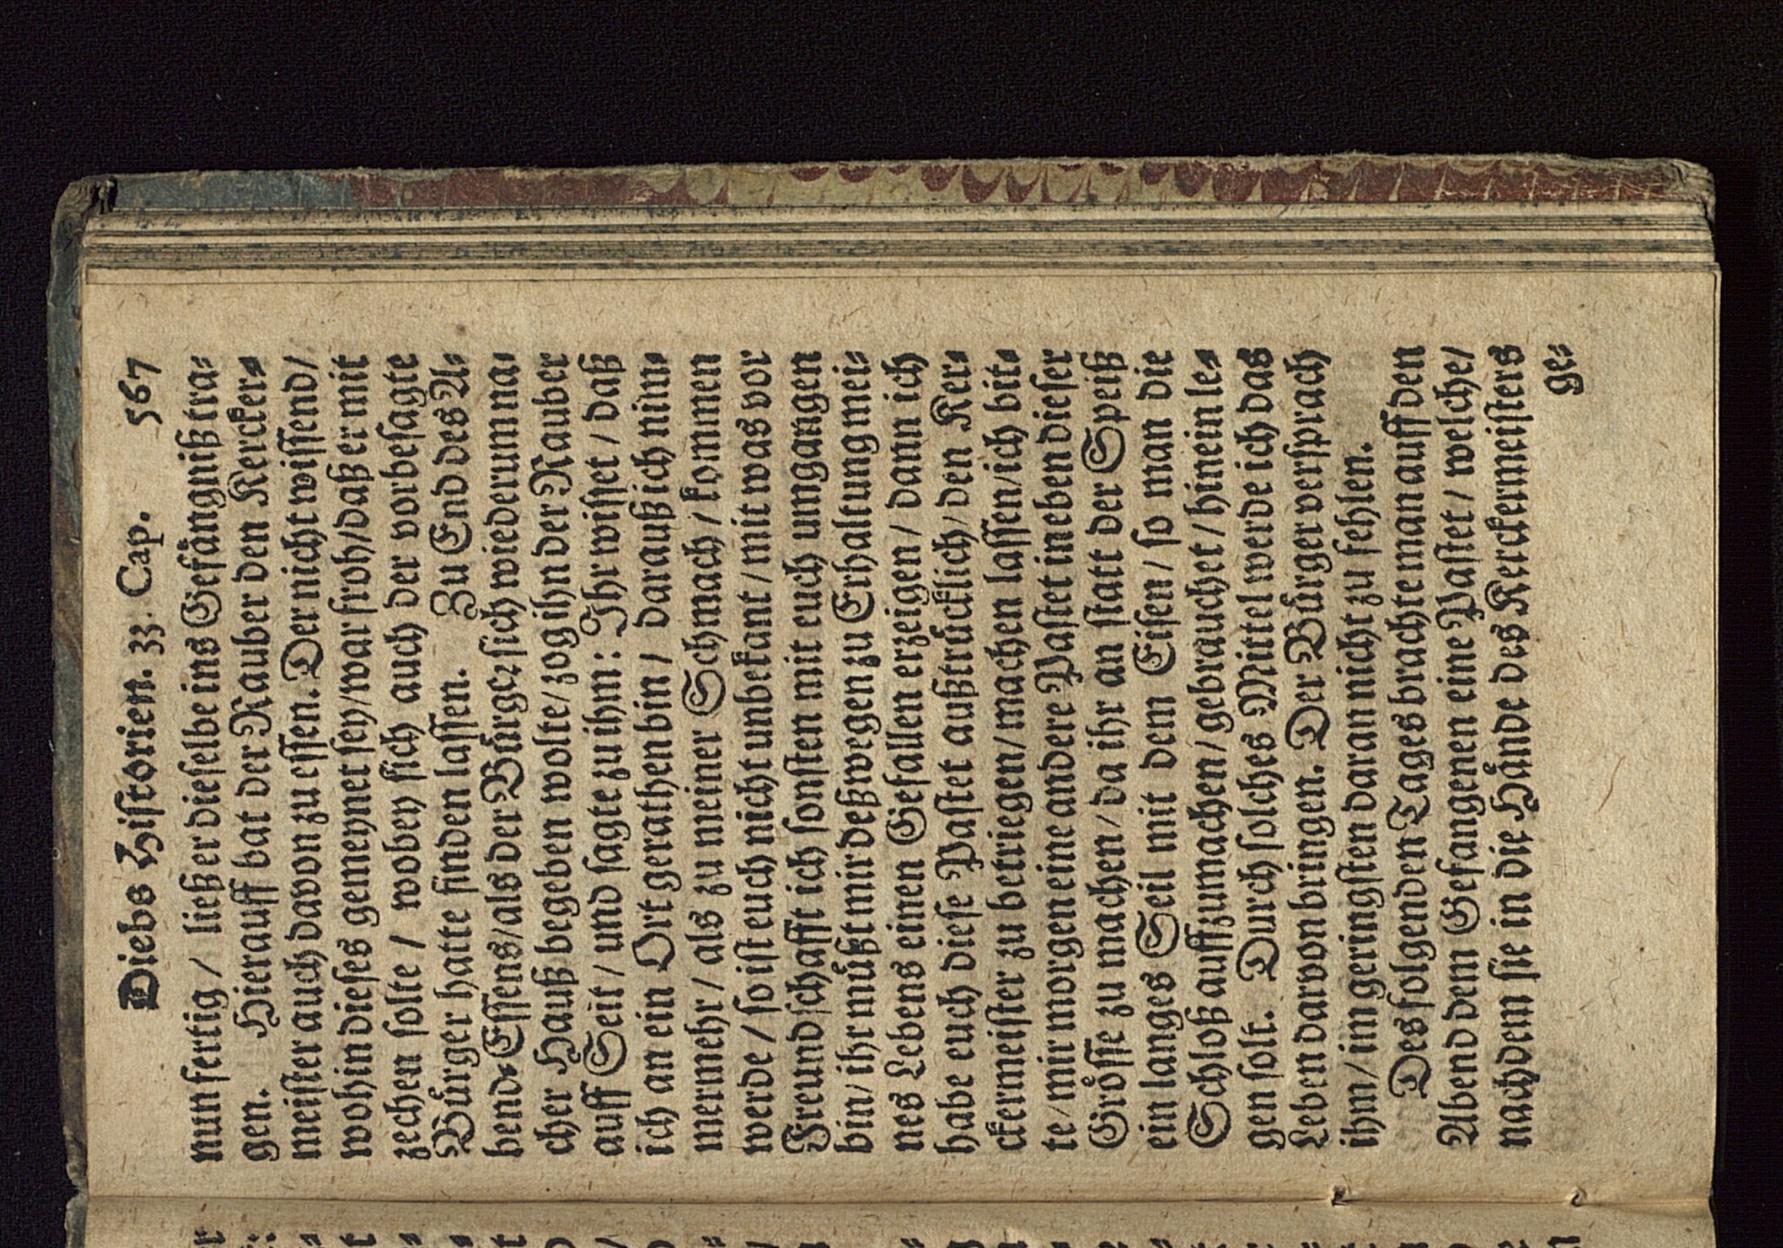 Diebs Historien. 33. Cap. 567
nun fertig / ließ er dieselbe ins Gefängniß tra-
gen. Hierauff bat der Rauber den Kercker-
meister auch davon zu essen. Der nicht wissend/
wohin dieses gemeynet sey/ war froh/ daß er mit
zechen solte / wobey sich auch der vorbesagte
Bürger hatte finden lassen. Zu End des A-
bend-Essens/ als der Bürger sich wiederum na-
cher Hauß begeben wolte/ zog ihn der Rauber
auff Seit / und sagte zu ihm: Ihr wisset / daß
ich an ein Ort gerathen bin / darauß ich nim-
mermehr / als zu meiner Schmach / kommen
werde / so ist euch nicht unbekant / mit was vor
Freundschafft ich sonsten mit euch umgangen
bin/ ihr müßt mir deßwegen zu Erhaltung mei-
nes Lebens einen Gefallen erzeigen / dann ich
habe euch diese Pastet außtrücklich/ den Ker-
ckermeister zu betriegen/ machen lassen/ ich bit-
te/ mir morgen eine andere Pastet in eben dieser
Grösse zu machen / da ihr an statt der Speiß
ein langes Seil mit dem Eisen / so man die
Schloß auffzumachen / gebrauchet / hinein le-
gen solt. Durch solches Mittel werde ich das
Leben darvon bringen. Der Bürger versprach
ihm/ im geringsten daran nicht zu fehlen.
Des folgenden Tages brachte man auff den
Abend dem Gefangenen eine Pastet / welche/
nachdem sie in die Hände des Kerckermeisters
ge-